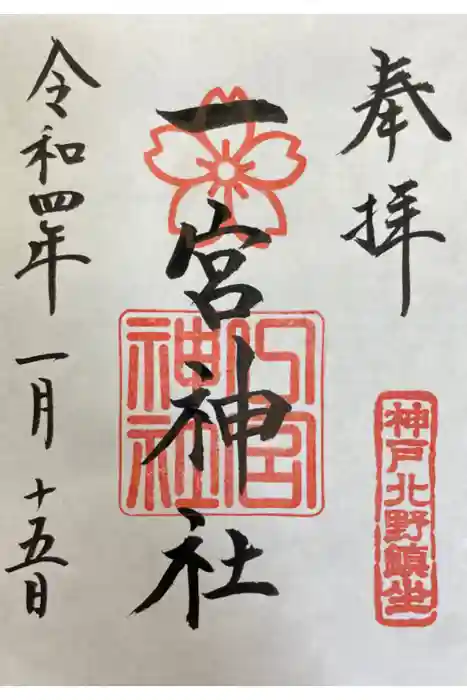 奉拝
神戸北野鎮坐
一宮神社
一宮神社
令和四年一月十五日